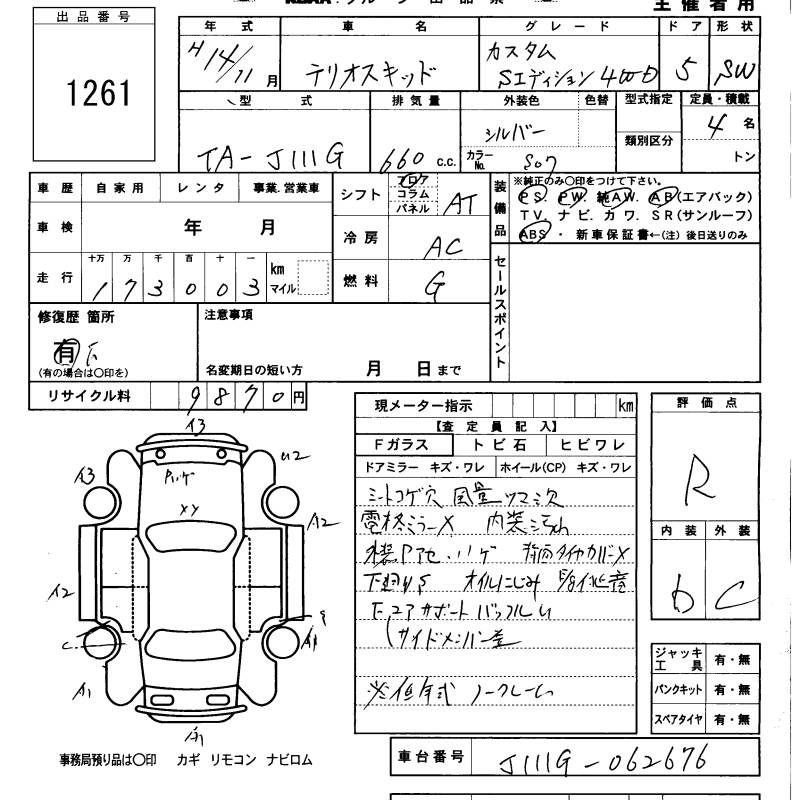 主催者用
出品番号
1261
年式 車名 グレード ドア 形状
H14/11月 テリオスキッド カスタム Sエディション 4WD 5 SW
型式 排気量 外装色 色替 型式指定 定員・積載
TA-J111G 660 c.c. シルバー 類別区分 4名
カラーNo. S07 トン
車歴 自家用 レンタ 事業.営業車
車検 年 月
走行 十万 万 千 百 十 一 km マイル
173003
シフト フロア コラム パネル AT
冷房 AC
燃料 G
装備品
※純正のみ〇印をつけて下さい。
PS. PW. 純AW. AB(エアバック)
TV. ナビ. カワ. SR(サンルーフ)
ABS ・ 新車保証書←(注) 後日送りのみ
セールスポイント
修復歴 箇所
有
(有の場合は〇印を)
注意事項
名変期日の短い方 月 日まで
リサイクル料 9870円
現メーター指示 km
【査定員記入】
Fガラス トビ石 ヒビワレ
ドアミラー キズ・ワレ ホイール(CP) キズ・ワレ
シートコゲ穴
電格ミラーX 内装汚れ
外装 ハゲ 背面タイヤカバーX
下廻りS オイルにじみ
コアサポート バッフル
サイドメンバー
※低年式 ノークレーム
評価点
R
内装 外装
D C
ジャッキ工具 有・無
パンクキット 有・無
スペアタイヤ 有・無
A3
A3 ハゲ U2
XY
A2
A2
C S
A1 A1
A1
事務局預り品は〇印 カギ リモコン ナビロム
車台番号 J111G-062676